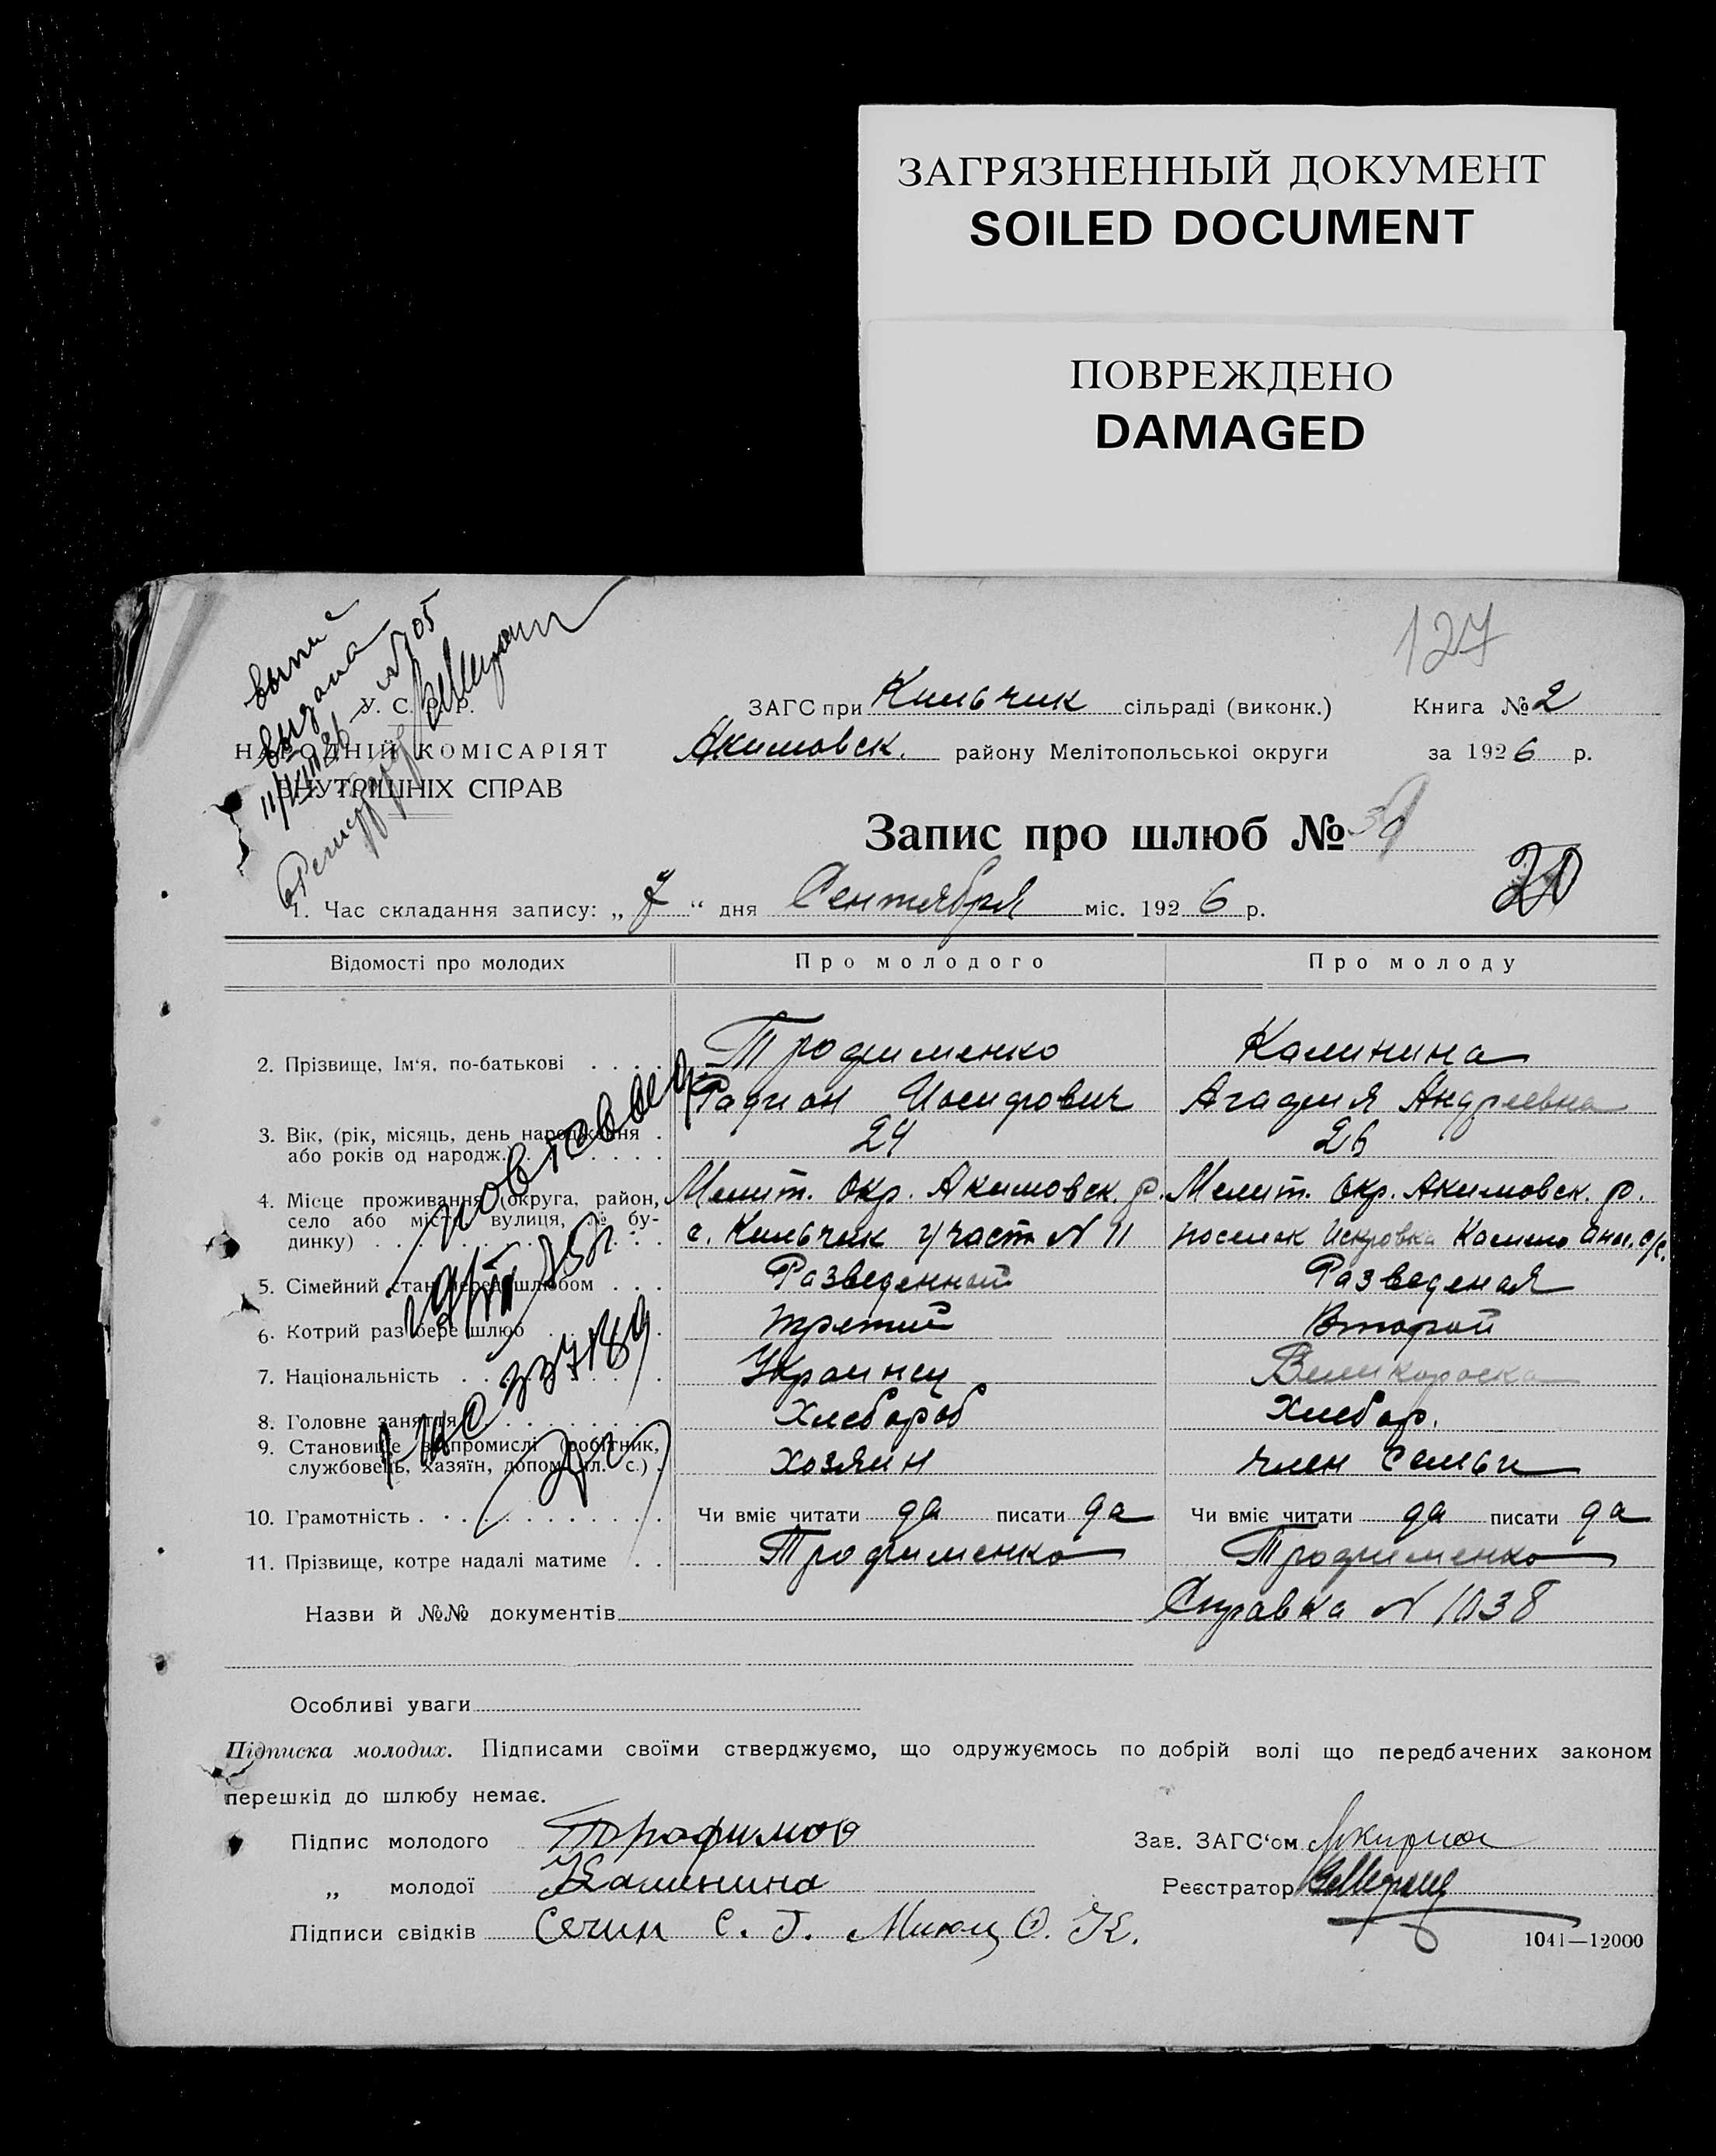 ЗАГРЯЗНЕННЫЙ ДОКУМЕНТ
SOILED DOCUMENT
ПОВРЕЖДЕНО
DAMAGED
127
выдана
N 705
У. С. Р. Р.
НАРОДНІЙ КОМІСАРІЯТ
ВНУТРІШНІХ СПРАВ
ЗАГС при Кильчик сільраді (виконк.) Книга № 2
Акимовск. району Мелітопольської округи за 1926 р.
Запис про шлюб №
20
1. Час складання запису: „7“ дня Сентября міс. 1926 р.
Відомості про молодих Про молодого Про молоду
2. Прізвище, Ім‘я, по-батькові Трофименко Калинина
Радион Иосифович Агафия Андреевна
3. Вік, (рік, місяць, день народження 24 26
або років од народж.
4. Місце проживання (округа, район, Мелит. Окр. Акимовск. р. Мелит. Окр. Акимовск. р.
село або місто, вулиця, № бу-
динку) с. Кильчик участ N 11 поселок Искровка
5. Сімейний стан перед шлюбом Разведенный Разведеная
6. Котрий раз бере шлюб третий Второй
7. Національність Украинец Великороска
8. Головне заняття Хлебороб Хлебор.
9. Становище в промислі (робітник, Хозяин член семьи
службовець, хазяїн, допом. чл. с.)
10. Грамотність Чи вміє читати да писати да Чи вміє читати да писати да
11. Прізвище, котре надалі матиме Трофименко Трофименко
Назви й №№ документів Справка N 1038
Особливі уваги
Підписка молодих. Підписами своїми стверджуємо, що одружуємось по добрій волі що передбачених законом
перешкід до шлюбу немає.
Підпис молодого
Зав. ЗАГС‘ом
„ молодої Калинина
Реєстратор
Підписи свідків С. Г. О. К.
1041—12000